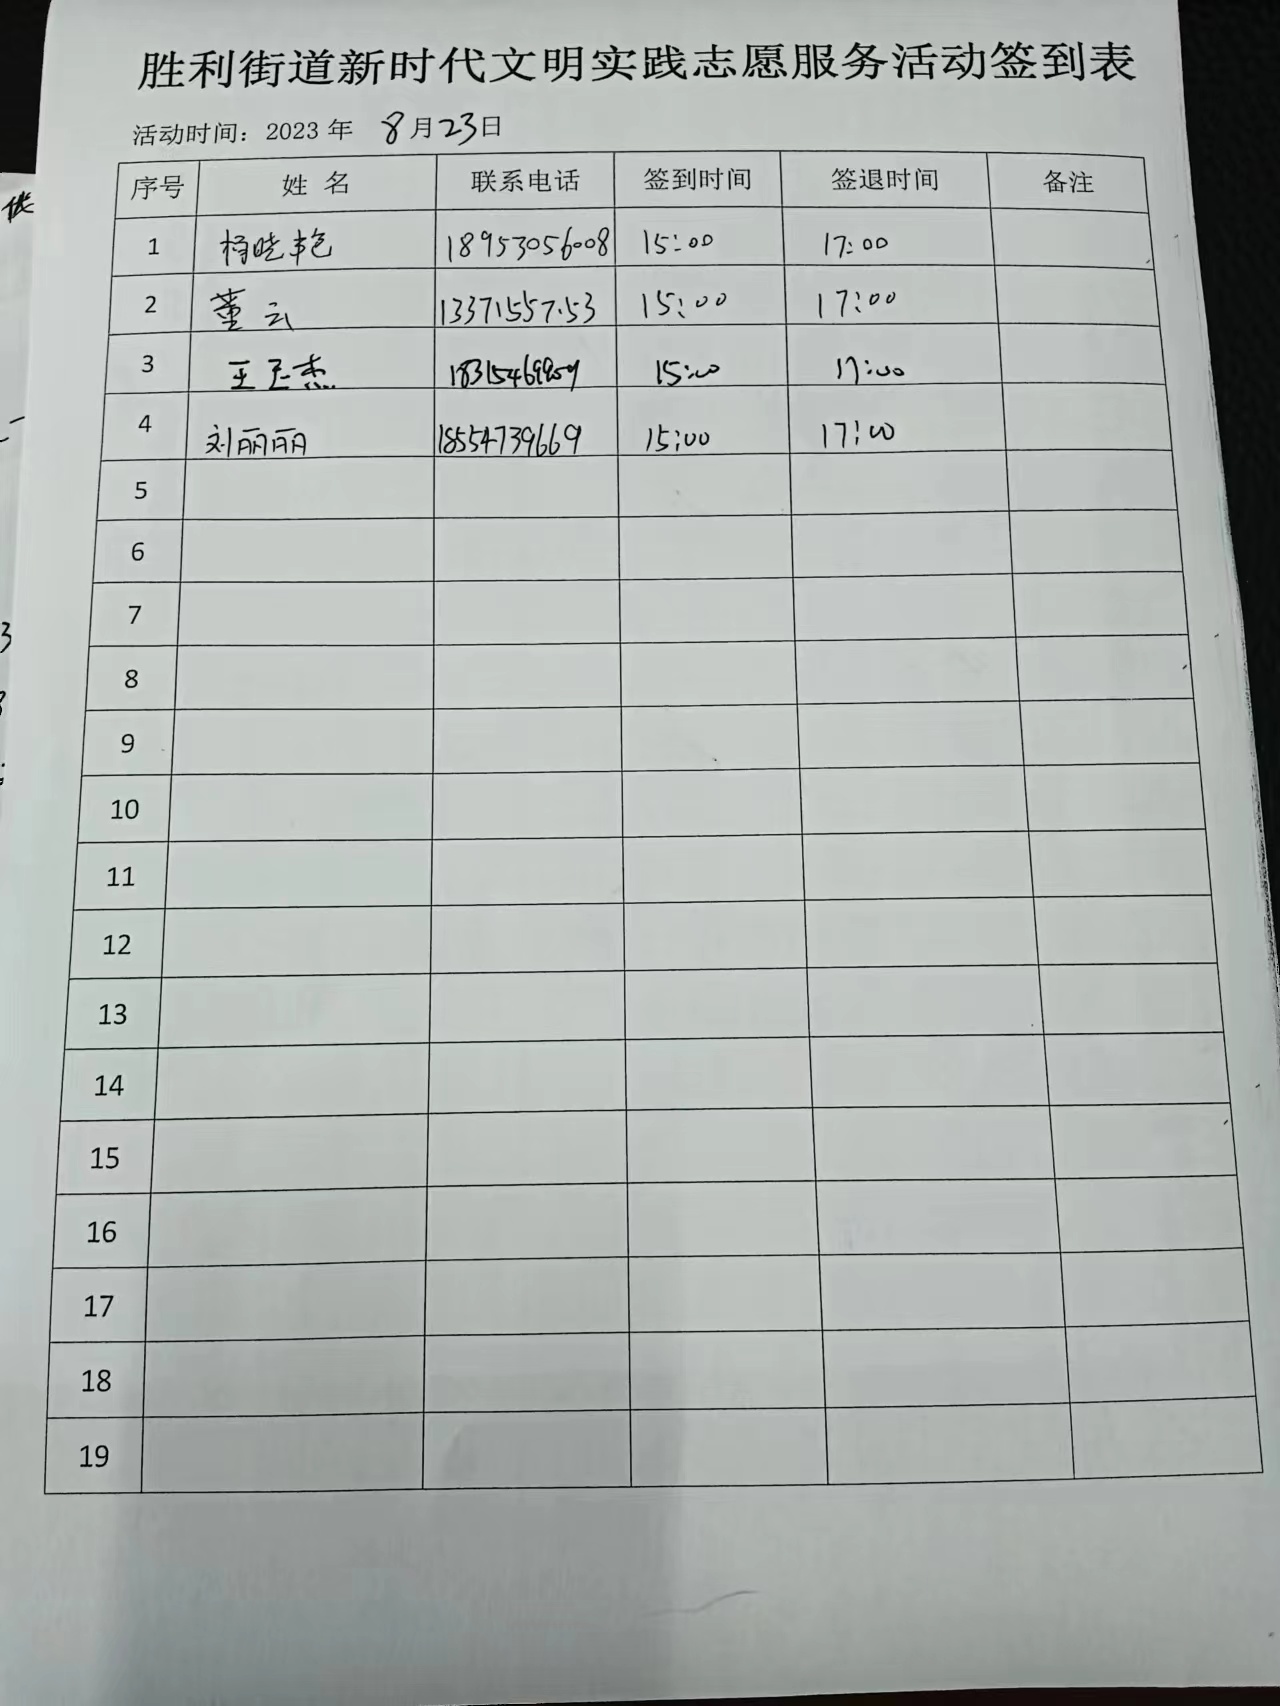 胜利街道新时代文明实践志愿服务活动签到表
活动时间：2023 年 8月23日
序号 姓 名 联系电话 签到时间 签退时间 备注
1 杨晓艳 18953056008 15:00 17:00
2 董云 13371557153 15:00 17:00
3 王玉杰 15:00 17:00
4 刘丽丽 18554739669 15:00 17:00
5
6
7
8
9
10
11
12
13
14
15
16
17
18
19